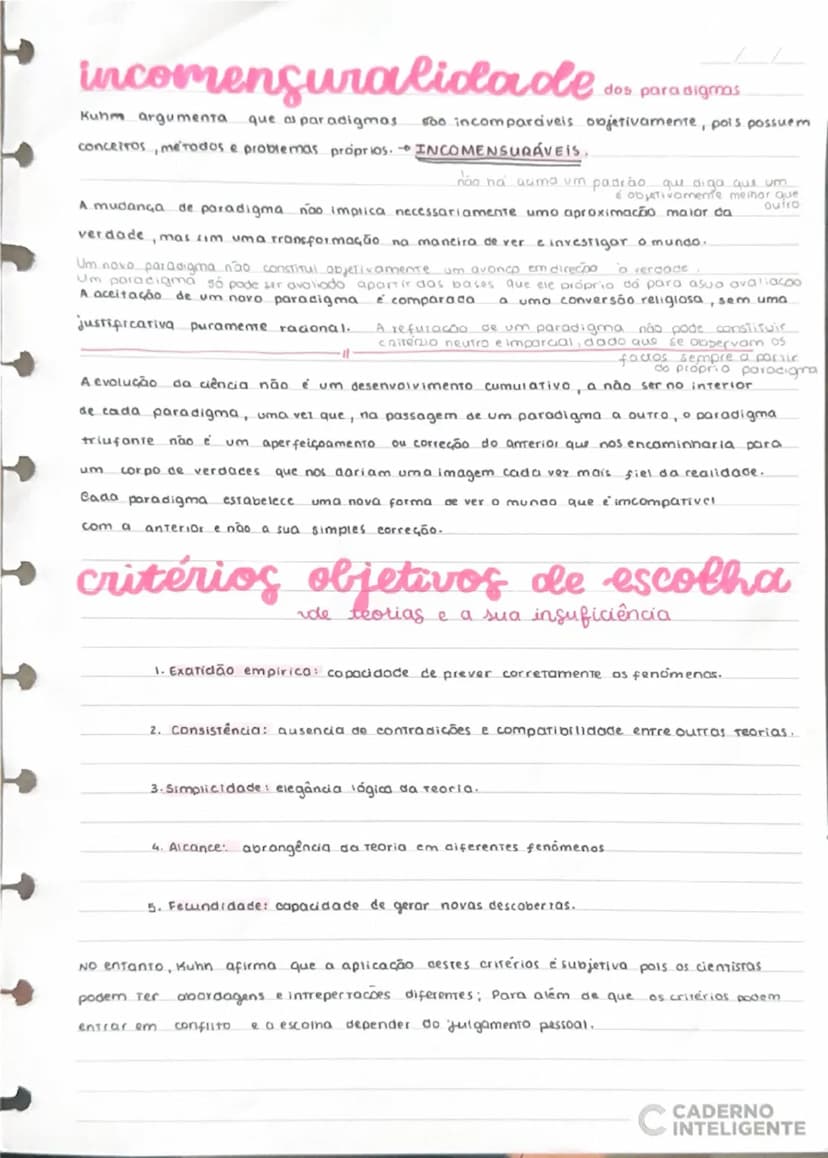 incomensuralidade dos paradigmas
Kuhm argumenta que os paradigmas são incomparáveis objetivamente, pois possuem
conceitos, métodos e problemas próprios. → INCOMENSURÁVEIS.
não há acima um padrão que diga que um
é objetivamente melhor que
outro
A mudança de paradigma não implica necessariamente uma aproximação maior da
verdade, mas sim uma transformação na maneira de ver e investigar o mundo.
Um novo paradigma não constitui objetivamente um avanço em direção à verdade.
Um paradigma só pode ser avaliado apartir das bases que ele próprio dá para a sua avaliação
A aceitação de um novo paradigma é comparada a uma conversão religiosa, sem uma
justificativa puramente racional. A refutação de um paradigma não pode constituir
critério neutro e imparcial, dado que se observam os
factos sempre a partir
do próprio paradigma
A evolução da ciência não é um desenvolvimento cumulativo, a não ser no interior
de cada paradigma, uma vez que, na passagem de um paradigma a outro, o paradigma
triufante não é um aperfeiçoamento ou correção do anterior que nos encaminharia para
um corpo de verdades que nos dariam uma imagem cada vez mais fiel da realidade.
Cada paradigma estabelece uma nova forma de ver o mundo que é imcompatível
com a anterior e não a sua simples correção.
critérios objetivos de escolha
de teorias e a sua insuficiência
1. Exatidão empírica: capacidade de prever corretamente os fenómenos.
2. Consistência: ausencia de contradições e compatibilidade entre outras teorias.
3. Simplicidade: elegância lógica da teoria.
4. Alcance: abrangência da teoria em diferentes fenómenos
5. Fecundidade: capacidade de gerar novas descobertas.
No entanto, Kuhn afirma que a aplicação destes critérios é subjetiva pois os cientistas
podem ter abordagens e intrepertações diferentes; Para além de que os critérios podem
entrar em conflito e a escolha depender do julgamento pessoal.
CADERNO
INTELIGENTE